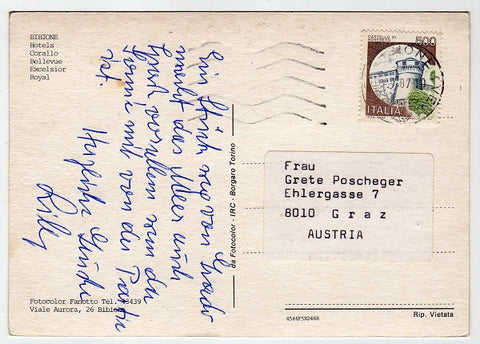 BIBIONE
Hotels
Corallo
Bellevue
Excelsior
Royal
Ein Stück von
macht das Meer und
vor allem wenn die
Sonne mit von der Partie
ist.
Herzliche Grüße
Lilly
da Fotocolor - IRC - Borgaro Torino
CASTELLO DI
500
ITALIA
BIBIONE
87
Frau
Grete Poscheger
Ehlergasse 7
8010 Graz
AUSTRIA
Fotocolor Fanotto Tel. 43439
Viale Aurora, 26 Bibione
4544F5H2468
Rip. Vietata